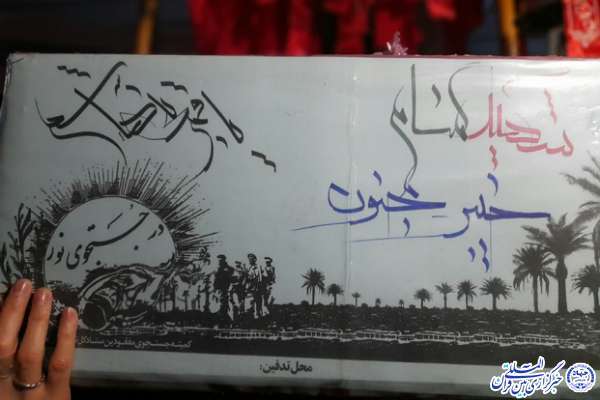 شهید گمنام
خیبر جنون
در جستجوی نور
کمیته جستجوی مفقودین ستاد کل
محل تدفین:
خبرگزاری بین المللی قرآن